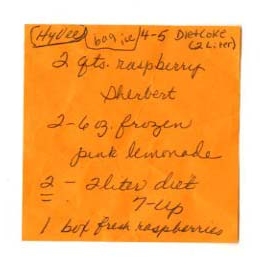 HyVee bag ice 4-5 Diet Coke
(2 Liter)
2 qts. raspberry
sherbert
2-6 oz. frozen
pink lemonade
2 - 2 liter diet
7-up
1 box fresh raspberries